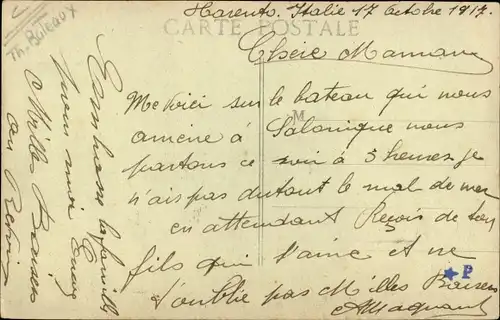 Harento. Italie 17 Octobre 1917.
CARTE POSTALE
Th. Bateaux
Chère Maman
Me voici sur le bateau qui nous
amène à Salonique nous
partons ce soir à 5 heures je
n'ais pas du tout le mal de mer
en attendant Reçois de ton
fils qui t'aime et ne
t'oublie pas Milles Baisers
AMagnant
M
P
Embrasse la famille
pour moi
Milles Baisers
au Revoir